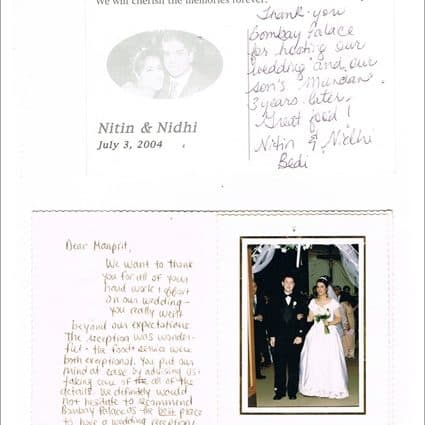 We will cherish the memories forever.
Nitin & Nidhi
July 3, 2004
Thank-you
Bombay Palace
for hosting our
wedding and our
son's Mundan
3 years later.
Great food!
Nitin & Nidhi
Bedi
Dear Manprit,
We want to thank
you for all of your
hard work & effort
on our wedding—
you really went
beyond our expectations.
The reception was wonder-
ful - the food & service were
both exceptional. You put our
mind at ease by advising us &
taking care of the all of the
details. We definitely would
not hesitate to recommend
Bombay Palace as the best place
to have a wedding reception!